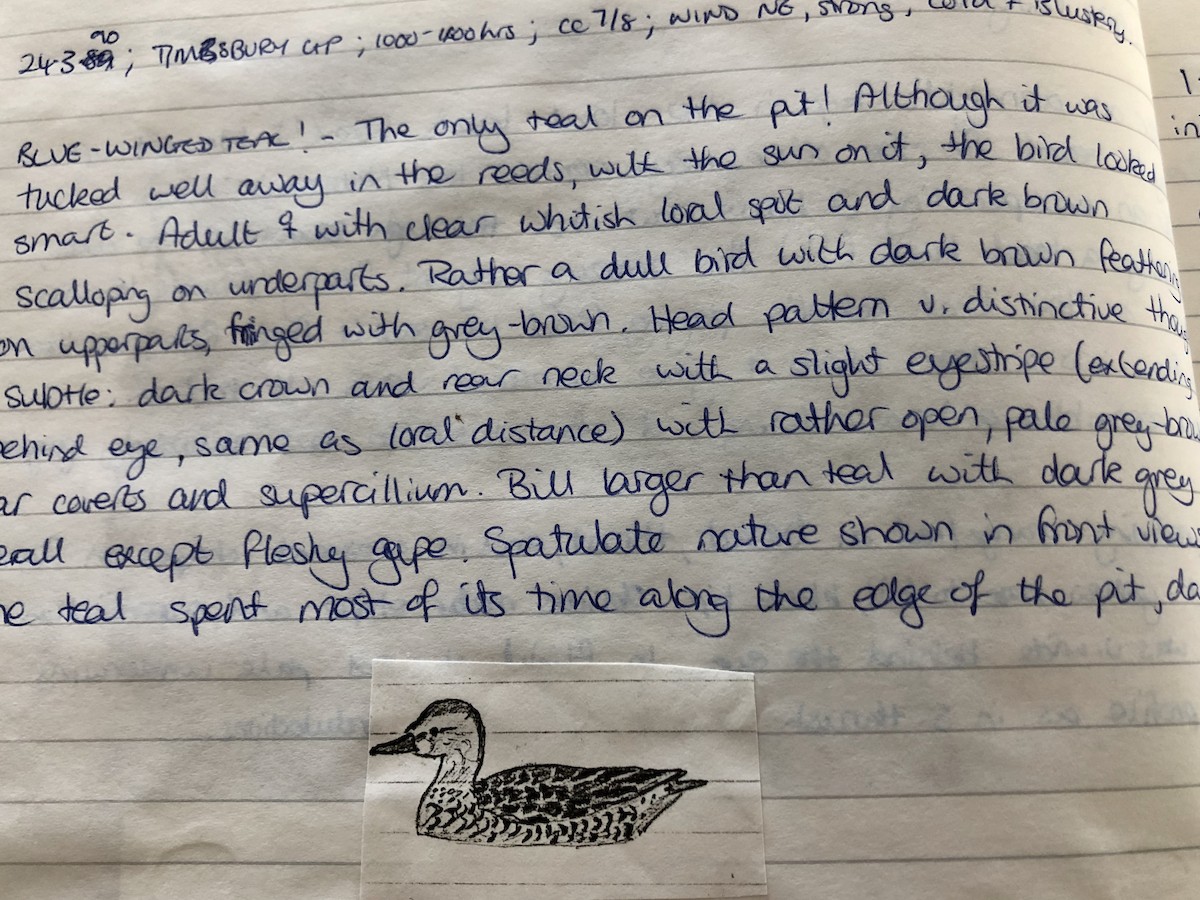 24.3.90; TIMSBURY GP; 1000-1400hrs; cc 7/8; WIND NE, strong, cold + blustery.
BLUE-WINGED TEAL! - The only teal on the pit! Although it was
tucked well away in the reeds, with the sun on it, the bird looked
smart. Adult ♀ with clear whitish loral spot and dark brown
scalloping on underparts. Rather a dull bird with dark brown feathers
on upperparts, fringed with grey-brown. Head pattern v. distinctive thou
subtle: dark crown and rear neck with a slight eyestripe (extending
ehind eye, same as loral distance) with rather open, pale grey-brow
ar coverts and supercillium. Bill larger than teal with dark grey
erall except fleshy gape. Spatulate nature shown in front views
he teal spent most of its time along the edge of the pit, da
in